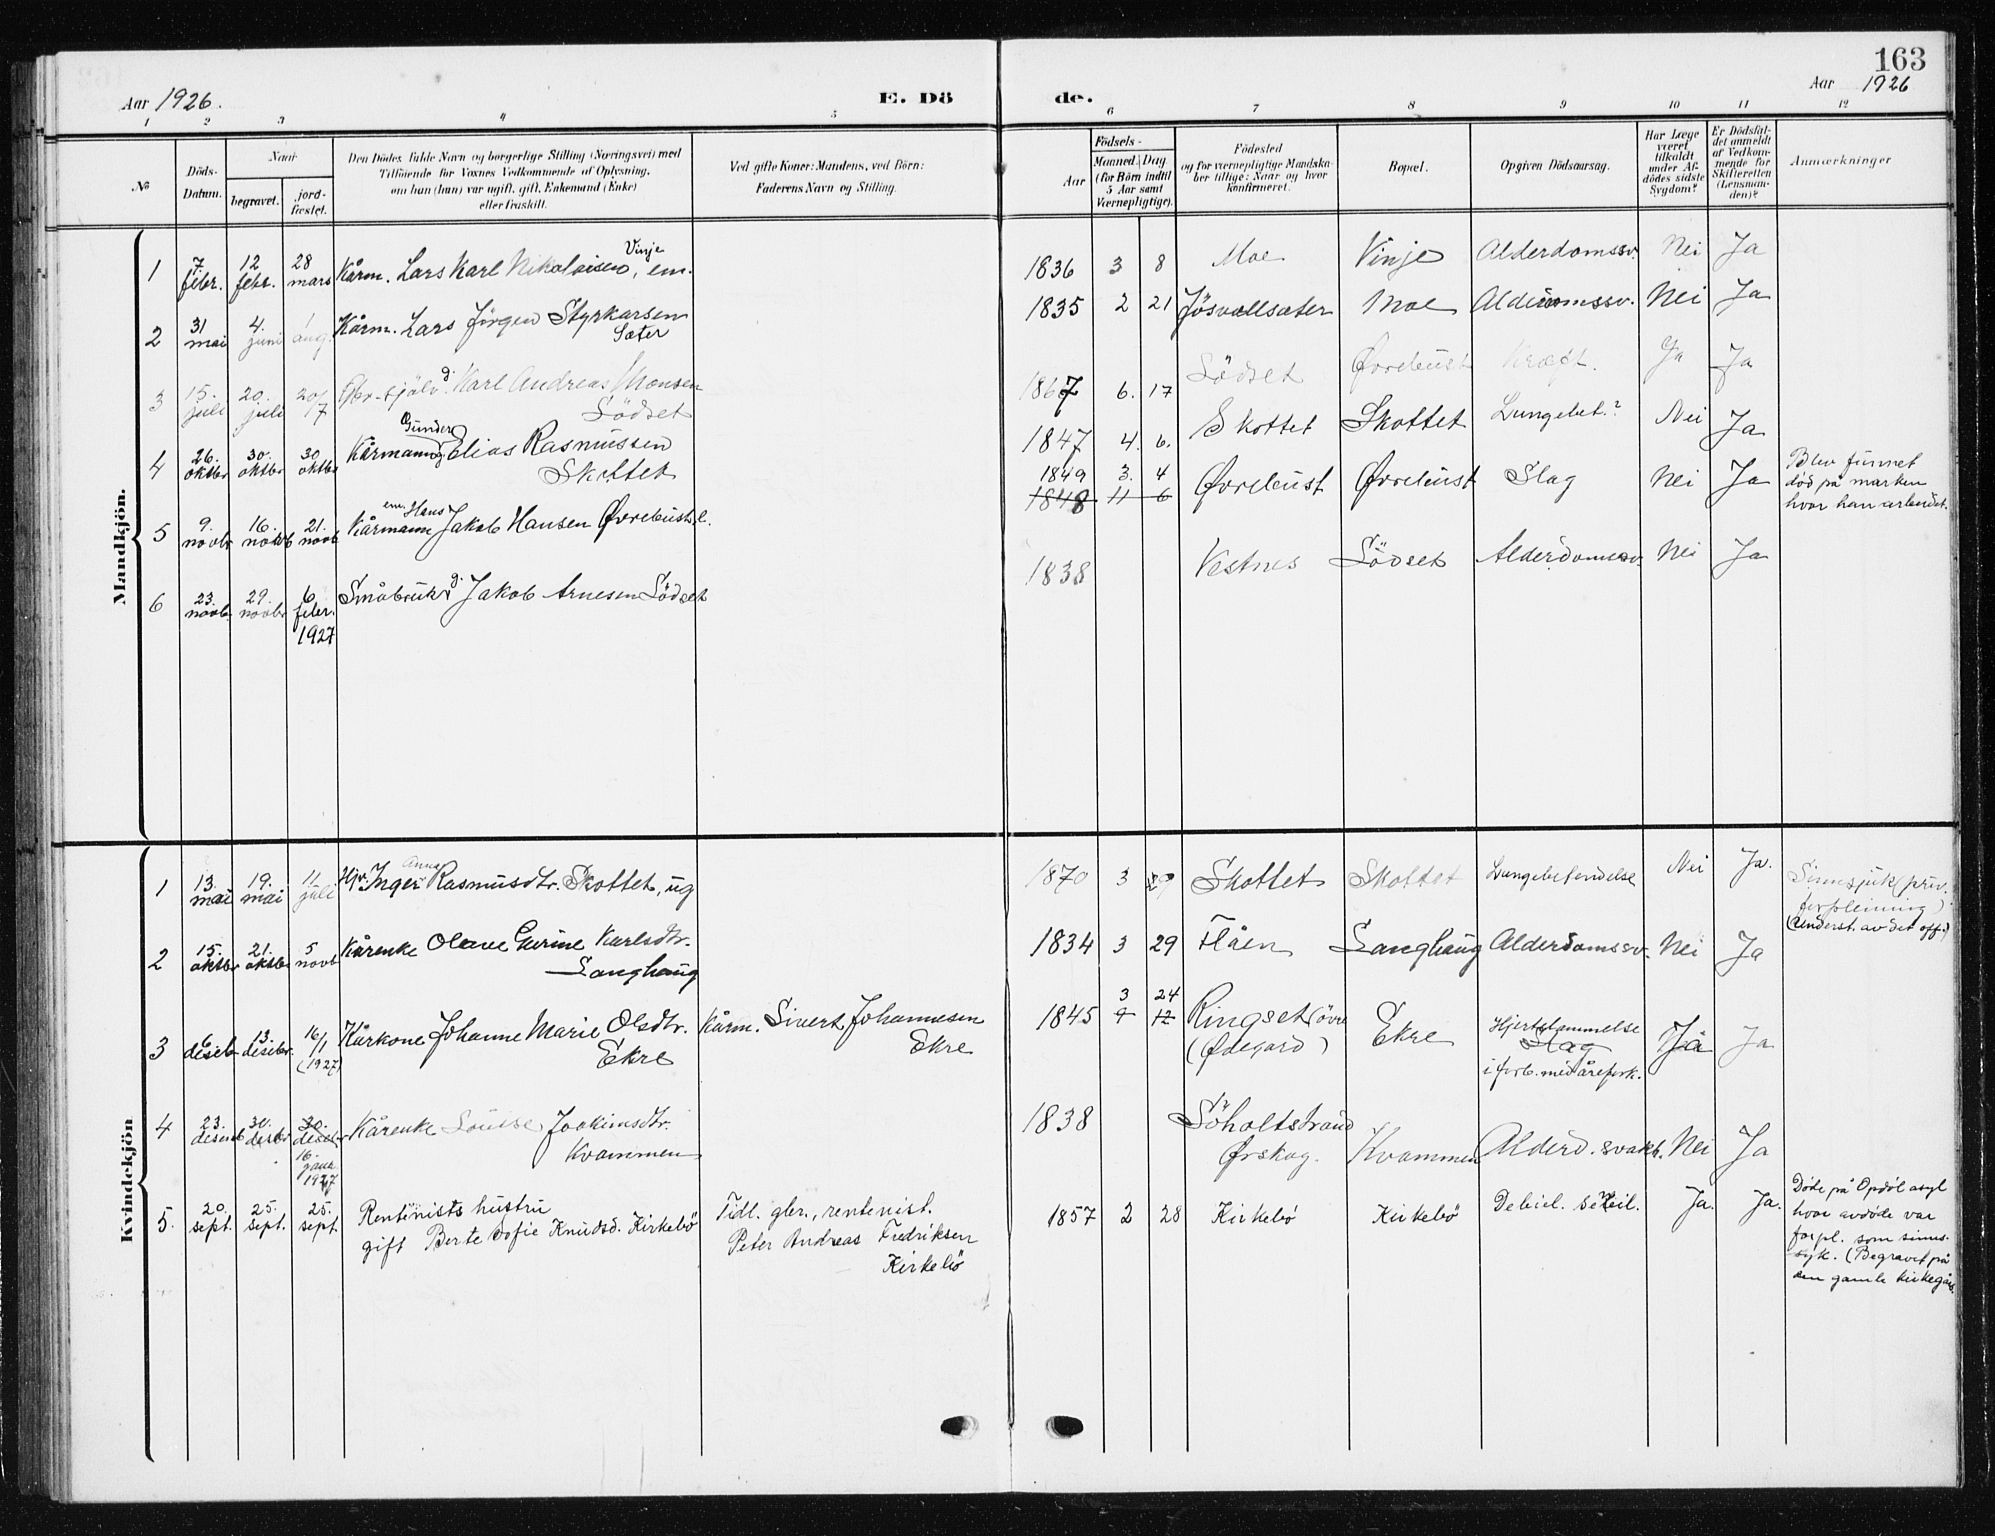 163
Aar 1926.
E. Dö
de.
Aar 1926
1 2 3 4 5 6 7 8 9 10 11 12
№
Döds-
Datum.
Naar
begravet.
jord-
fæstet.
Den Dödes fulde Navn og borgerlige Stilling (Næringsvei) med
Tilföiende for Voxnes Vedkommende af Oplysning,
om han (hun) var ugift, gift, Enkemand (Enke)
eller fraskilt.
Ved gifte Koner: Mandens, ved Börn:
Faderens Navn og Stilling.
Födsels-
Aar
Maaned. Dag
(for Börn indtil
5 Aar samt
Værnepligtige).
Födested
og for værnepligtige Mandska-
ber tillige: Naar og hvor
konfirmeret.
Bopæl.
Opgiven Dödsaarsag.
Har Læge
været
tilkaldt
under Af-
dödes sidste
Sygdom?
Er Dödsfal-
det anmeldt
af Vedkom-
mende for
Skifteretten
(Lensman-
den)?
Anmærkninger
Mandkjön.
1 7. febr. 12 febr. 28 mars Kårm. Lars Karl Nikolaisen Vinje, em. 1836 3 8 Moe Vinje Alderdomssv. Nei Ja
2 31 mai 4. juni 1 aug. Kårm. Lars Jörgen Styrkarsen
Sæter 1835 2 21 Jösvollsæter Moe Alderdomssv. Nei Ja
3 15. juli 20. juli 20/7 g. Karl Andreas Monsen
Lödset 1867 6. 17 Lödset Øvrebust Kræft. Ja Ja
4 26. oktbr 30. oktbr 30 oktbr Kårmann Gunder Elias Rasmussen
Skottet 1847 4. 6. Skottet Skottet Lungebet.? Nei Ja
5 9. novbr 16. novb 21. novb. Kårmann em. Hans Jakob Hansen Øvrebust 1849 3. 4
1848 11 6 Øvrebust Øvrebust Slag Nei Ja Blev funnet
død på marken
hvor han arbeidet.
6 23. novb. 29. novbr 6 febr. 1927 Småbruker g. Jakob Arnesen Lödset 1838 Vestnes Lödset Alderdomssv. Nei Ja
Kvindekjön
1 13. mai 19. mai 11. juli Inger Anna Rasmusdtr. Skottet, ug 1870 3 29 Skottet Skottet Lungebetendelse Nei Ja. Sinnsjuk (priv.
forpleining)
(Underst. av det off.)
2 15. oktbr 21. oktbr 5 novb Kårenke Olave Gurine Karlsdtr.
Langhaug 1834 3 29 Flåen Langhaug Alderdomssv. Nei Ja
3 6 desebr 13. desebr. 16/1 (1927) Kårkone Johanne Marie Olsdtr.
Ekre Kårm. Sivert Johannesen
Ekre 1845 3 24
9 12 Ringset (övre
(Ødegard) Ekre Hjertelammelse
Slag
i forb. med årefork. Ja Ja
4 23. desemb 30. desbr 30. desebr
16. janr. 1927 Kårenke Louise Joakimsdtr.
Kvammen 1838 Söholtstrand
Ørskog. Kvammen Alderd. svakh. Nei Ja
5. 20. sept. 25. sept. 25. sept. Rentenists hustru
gift Berte Sofie Knudsd. Kirkebö Tidl. gbr., rentenist.
Peter Andreas Fredriksen
Kirkebö 1857 2 28 Kirkebö Kirkebö Debil. senil. Ja. Ja. Døde på Opdøl asyl
hvor avdøde var
forpl. som sinns-
syk. (Begravet på
den gamle kirkegård.